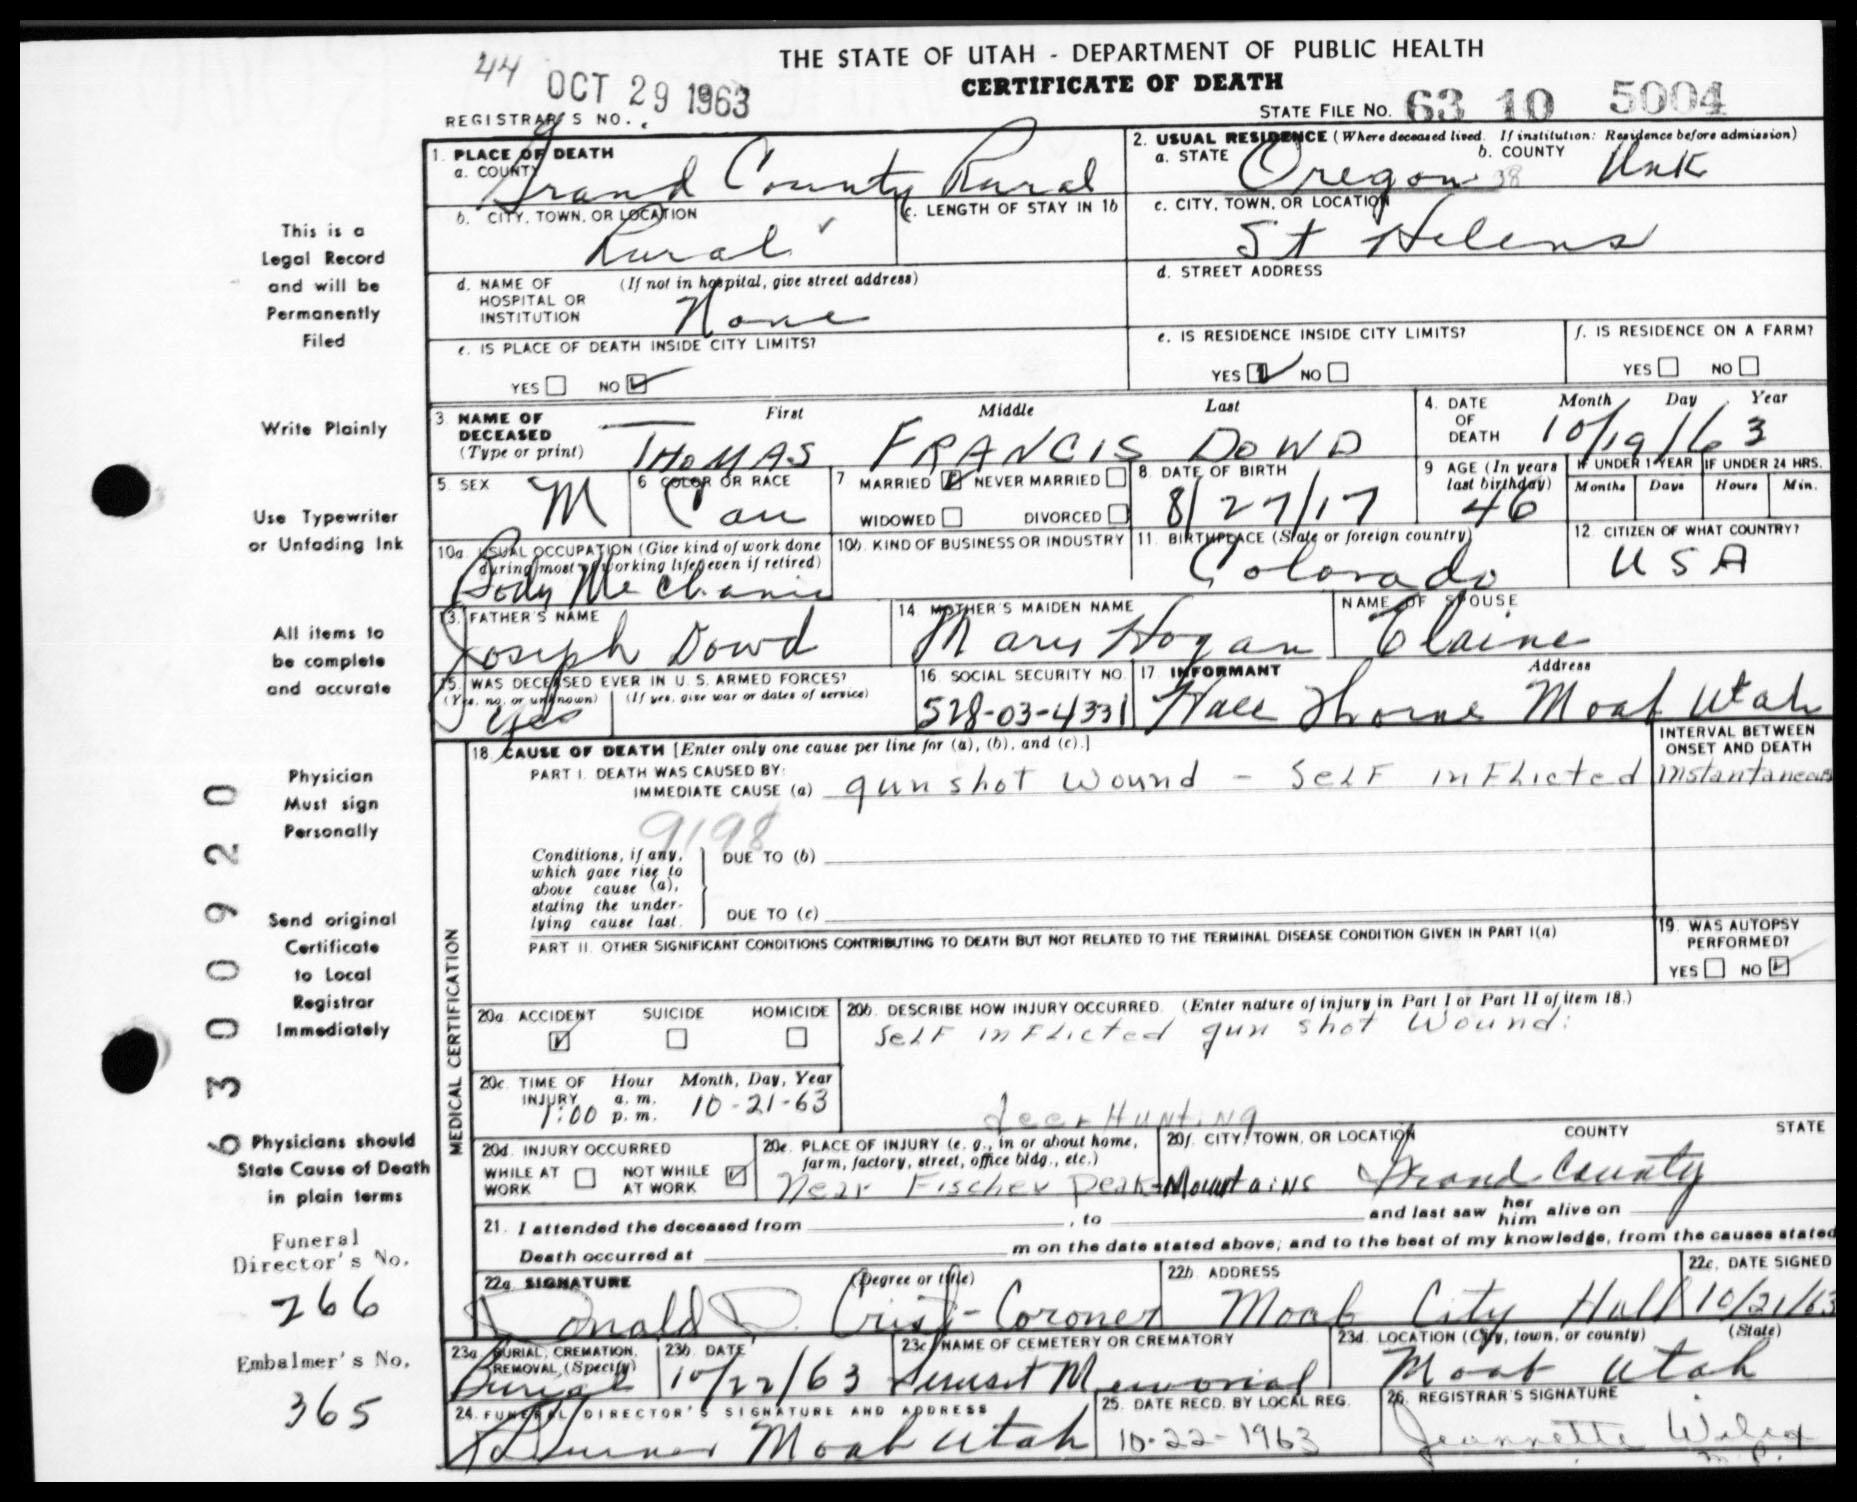 THE STATE OF UTAH - DEPARTMENT OF PUBLIC HEALTH
CERTIFICATE OF DEATH
44 OCT 29 1963
REGISTRAR'S NO.
STATE FILE NO. 63 10 5004
1. PLACE OF DEATH
a. COUNTY Grand County Rural
2. USUAL RESIDENCE (Where deceased lived. If institution: Residence before admission)
a. STATE Oregon 38 b. COUNTY Unk
b. CITY, TOWN, OR LOCATION Rural
c. LENGTH OF STAY IN 1b
c. CITY, TOWN, OR LOCATION St Helens
d. NAME OF HOSPITAL OR INSTITUTION (If not in hospital, give street address) None
d. STREET ADDRESS
e. IS PLACE OF DEATH INSIDE CITY LIMITS?
YES NO
e. IS RESIDENCE INSIDE CITY LIMITS?
YES NO
f. IS RESIDENCE ON A FARM?
YES NO
3. NAME OF DECEASED (Type or print) First Middle Last
THOMAS FRANCIS DOWD
4. DATE OF DEATH Month Day Year
10/19/63
5. SEX M
6. COLOR OR RACE Cau
7. MARRIED NEVER MARRIED
WIDOWED DIVORCED
8. DATE OF BIRTH 8/27/17
9. AGE (In years last birthday) 46
IF UNDER 1 YEAR Months Days
IF UNDER 24 HRS. Hours Min.
10a. USUAL OCCUPATION (Give kind of work done during most of working life, even if retired)
Body Mechanic
10b. KIND OF BUSINESS OR INDUSTRY
11. BIRTHPLACE (State or foreign country) Colorado
12. CITIZEN OF WHAT COUNTRY? USA
13. FATHER'S NAME Joseph Dowd
14. MOTHER'S MAIDEN NAME Mary Hogan
NAME OF SPOUSE Elaine
15. WAS DECEASED EVER IN U.S. ARMED FORCES?
(Yes, no, or unknown) (If yes, give war or dates of service)
Yes
16. SOCIAL SECURITY NO. 528-03-4331
17. INFORMANT Address
Thorne Moab Utah
MEDICAL CERTIFICATION
18. CAUSE OF DEATH [Enter only one cause per line for (a), (b), and (c).]
INTERVAL BETWEEN ONSET AND DEATH
PART I. DEATH WAS CAUSED BY:
IMMEDIATE CAUSE (a) gun shot wound - SeLF inFLicted instantaneous
9198
Conditions, if any, which gave rise to above cause (a), stating the underlying cause last.
DUE TO (b)
DUE TO (c)
PART II. OTHER SIGNIFICANT CONDITIONS CONTRIBUTING TO DEATH BUT NOT RELATED TO THE TERMINAL DISEASE CONDITION GIVEN IN PART I(a)
19. WAS AUTOPSY PERFORMED?
YES NO
20a. ACCIDENT SUICIDE HOMICIDE
20b. DESCRIBE HOW INJURY OCCURRED. (Enter nature of injury in Part I or Part II of item 18.)
SeLF inFLicted gun shot wound:
deer HUNTING
20c. TIME OF INJURY Hour a. m. p. m. Month, Day, Year
1:00 10-21-63
20d. INJURY OCCURRED
WHILE AT WORK NOT WHILE AT WORK
20e. PLACE OF INJURY (e. g., in or about home, farm, factory, street, office bldg., etc.)
Near Fischer peak-Mountains
20f. CITY, TOWN, OR LOCATION COUNTY STATE
Grand County
21. I attended the deceased from , to and last saw her him alive on
Death occurred at m on the date stated above; and to the best of my knowledge, from the causes stated
22a. SIGNATURE (Degree or title)
Donald D. Crist - Coroner
22b. ADDRESS Moab City Hall
22c. DATE SIGNED 10/21/63
23a. BURIAL, CREMATION, REMOVAL (Specify) Burial
23b. DATE 10/22/63
23c. NAME OF CEMETERY OR CREMATORY Sunset Memorial
23d. LOCATION (City, town, or county) (State)
Moab Utah
24. FUNERAL DIRECTOR'S SIGNATURE AND ADDRESS
Moab Utah
25. DATE RECD. BY LOCAL REG. 10-22-1963
26. REGISTRAR'S SIGNATURE
Jeannette
This is a
Legal Record
and will be
Permanently
Filed
Write Plainly
Use Typewriter
or Unfading Ink
All items to
be complete
and accurate
Physician
Must sign
Personally
Send original
Certificate
to Local
Registrar
Immediately
Physicians should
State Cause of Death
in plain terms
Funeral
Director's No.
266
Embalmer's No.
365
6300920